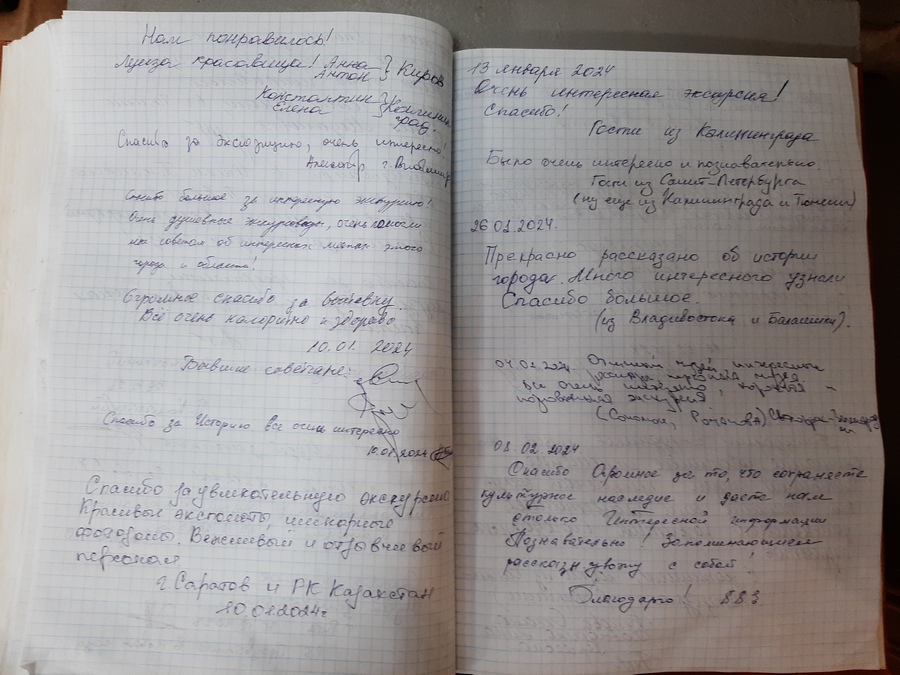 Нам понравилось!
Луиза красавица! Анна
Антон
Киров
Константин
Елена
Спасибо за экспозицию, очень интересно!
г. Владимир
Спасибо большое за интересную экскурсию!
Очень душевные экскурсоводы, очень помогли
об интересных местах этого
города и области!
Огромное спасибо за выставку.
Всё очень колоритно и здорово
10.01. 2024
Бывшие советчане:
Спасибо за Историю все очень интересно
10.01.2024
Спасибо за увлекательную экскурсию
Красивые экспонаты, шикарные
фотозоны. Вежливый и отзывчивый
персонал
г. Саратов и РК Казахстан
10.01.2024г
13 января 2024
Очень интересная экскурсия!
Спасибо!
Гости из Калининграда
Было очень интересно и познавательно.
Гости из Санкт-Петербурга
(ну еще из Калининграда и Тюмени)
26.01.2024.
Прекрасно рассказано об истории
города. Много интересного узнали
Спасибо большое.
(из Владивостока и Балашихи).
музей интересные
Все очень
познавательная экскурсия
08.02.2024
Спасибо Огромное за то, что сохраняете
культурное наследие и даете нам
столько Интересной информации
Познавательно! Запоминающиеся
рассказы увожу с собой!
Благодарю!